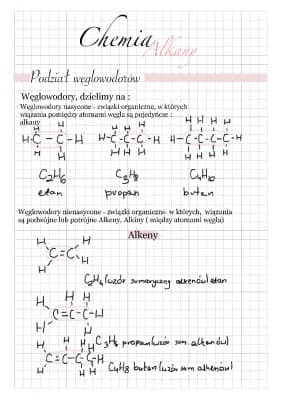 Chemia
Alkany
Podział węglowodorów
Węglowodory, dzielimy na :
Węglowodory nasycone - związki organiczne, w których
wiązania pomiędzy atomami węgla są pojedyńcze :
alkany
H H H H H H H H H
H-C-C-H H-C-C-C-H H-C-C-C-C-H
H H H H H H H H H
C2H6 C3H8 C4H10
etan propan butan
Węglowodory nienasycone - związki organiczne w których, wiązania
są podwójne lub potrójne Alkeny, Alkiny ( między atomami węgla)
Alkeny
H H
C=C
H H
C2H4 (wzór sumaryczny alkenów) etan
H H H
C=C-C-H
H H
C3H6 propan (wzór sum. alkenów)
H H H
C=C-C-C-H
H H H
C4H8 butan (wzór sum alkenów)